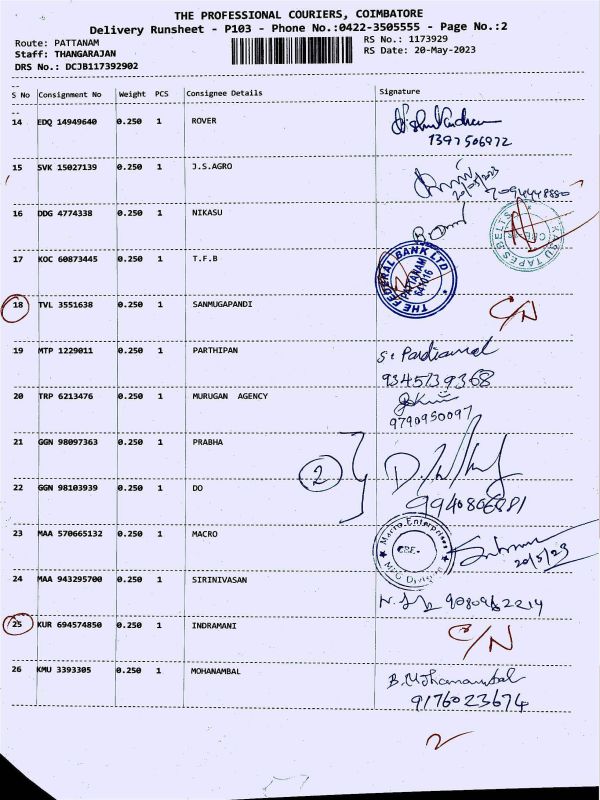 THE PROFESSIONAL COURIERS, COIMBATORE
Delivery Runsheet - P103 - Phone No.:0422-3505555 - Page No.:2
Route: PATTANAM
RS No.: 1173929
Staff: THANGARAJAN
RS Date: 20-May-2023
DRS No.: DCJB117392902
S No Consignment No Weight PCS Consignee Details Signature
14 EDQ 14949640 0.250 1 ROVER
1397506972
15 SVK 15027139 0.250 1 J.S.AGRO
20/05/23
7094448880
16 DDG 4774338 0.250 1 NIKASU
17 KOC 60873445 0.250 1 T.F.B
THE FEDERAL BANK LTD
PATTANAM
641016
18 TVL 3551638 0.250 1 SANMUGAPANDI
C/N
19 MTP 1229011 0.250 1 PARTHIPAN
9345139368
20 TRP 6213476 0.250 1 MURUGAN AGENCY
9790950097
21 GGN 98097363 0.250 1 PRABHA
2
22 GGN 98103939 0.250 1 DO
23 MAA 570665132 0.250 1 MACRO
Macro Enterprises
CBE.
MFG Division
20/5/23
24 MAA 943295700 0.250 1 SIRINIVASAN
25 KUR 694574850 0.250 1 INDRAMANI
C/N
26 KMU 3393305 0.250 1 MOHANAMBAL
B. Mohanambal
9176023674
2